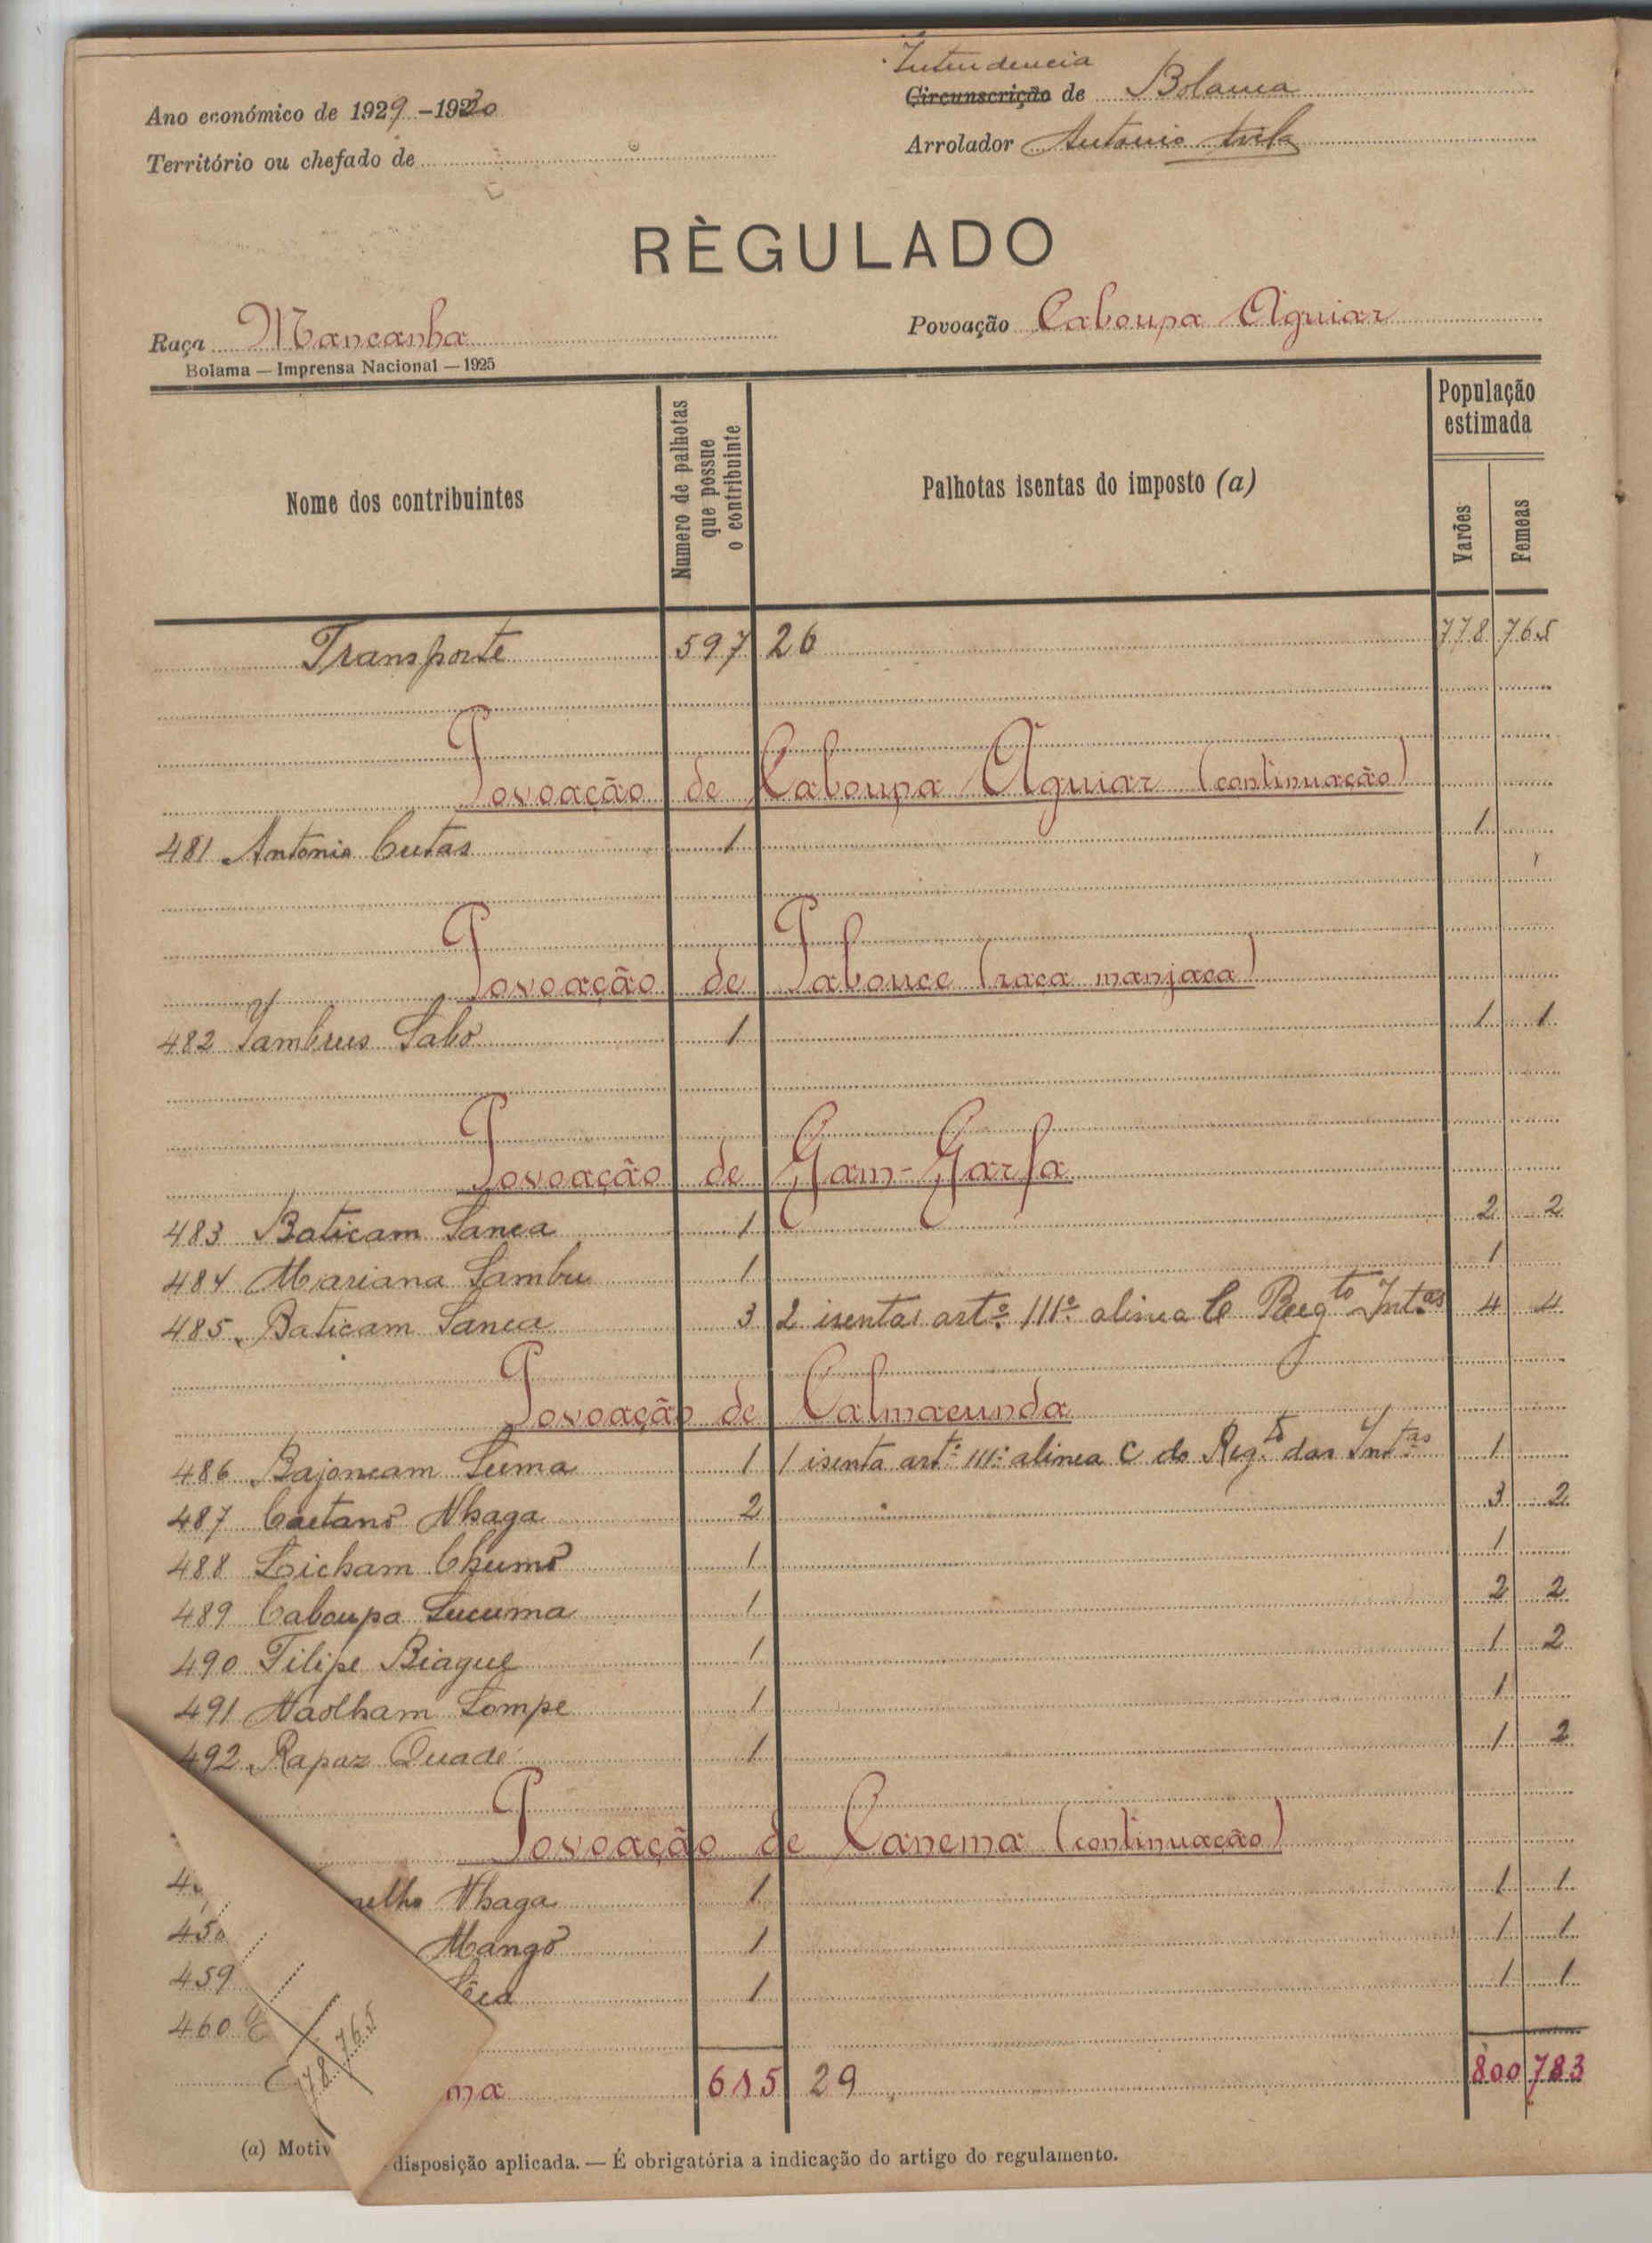 Intendencia
Ano económico de 1929-1930
Circunscrição de Bolama
Território ou chefado de
Arrolador Antonio
RÈGULADO
Raça Mancanha
Povoação Caboupa Aguiar
Bolama — Imprensa Nacional — 1925
Nome dos contribuintes
Numero de palhotas que possue o contribuinte
Palhotas isentas do imposto (a)
População estimada
Varões
Femeas
Transporte 597 26 778 765
Povoação de Caboupa Aguiar (continuação)
481 Antonio Cutas 1 1
Povoação de Pabouce (raça manjaca)
482 Jambrus Sabo 1 1 1
Povoação de Gam-Garfa
483 Baticam Sanca 1 2 2
484 Mariana Sambu 1 1
485 Baticam Sanca 3 2 isentas artº 111º alinea C Regto Int.as 4 4
Povoação de Calmacunda
486 Bajoncam Suma 1 1 isenta artº 111º alinea C do Reg.to das Int.as 1
487 Caetano Nhaga 2 3 2
488 Licham Chumo 1 1
489 Caboupa Sucuma 1 2 2
490 Filipe Biague 1 1 2
491 Naolham Lompe 1 1
492 Rapaz Quadé 1 1 2
Povoação de Canema (continuação)
4 elho Nhaga 1 1 1
450 Mango 1 1 1
459 1 1 1
460
78 765
ma 615 29 800 783
(a) Motiv disposição aplicada. — É obrigatória a indicação do artigo do regulamento.